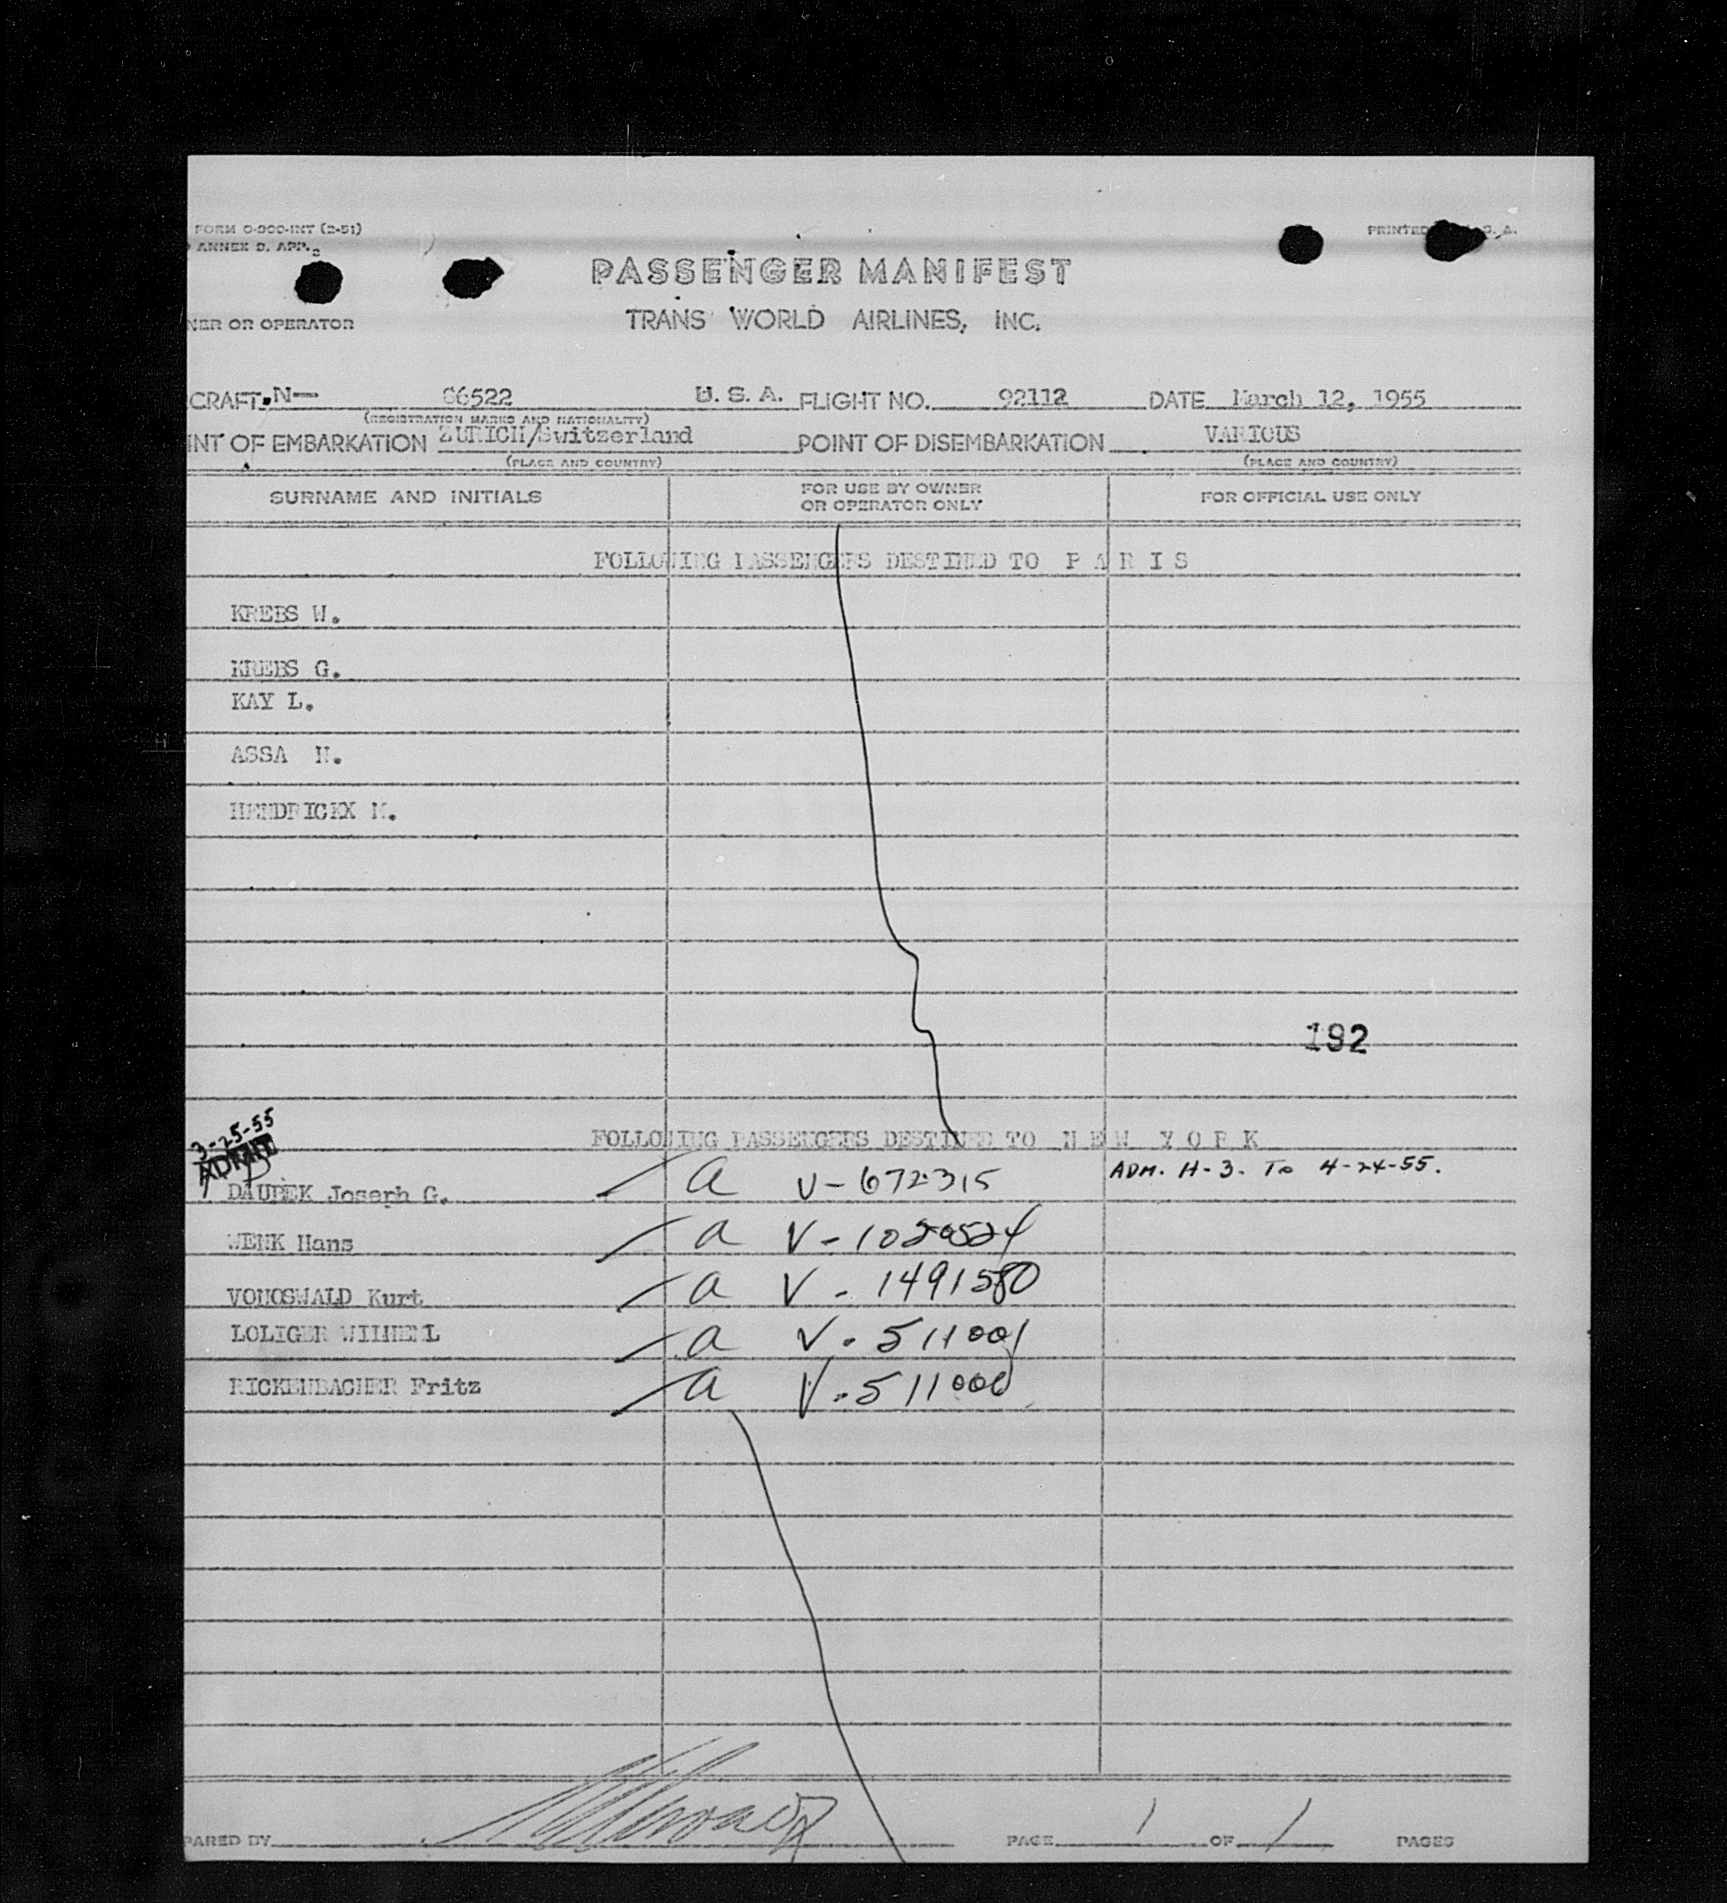 FORM O-900-INT (2-51)
ANNEX D. APP. 2
PRINTED S. A.
PASSENGER MANIFEST
NER OR OPERATOR
TRANS WORLD AIRLINES, INC.
CRAFT. N— 86522 U. S. A. FLIGHT NO. 92112 DATE March 12, 1955
(REGISTRATION MARKS AND NATIONALITY)
INT OF EMBARKATION ZURICH/Switzerland POINT OF DISEMBARKATION VARIOUS
(PLACE AND COUNTRY) (PLACE AND COUNTRY)
SURNAME AND INITIALS FOR USE BY OWNER OR OPERATOR ONLY FOR OFFICIAL USE ONLY
FOLLOWING PASSENGERS DESTINED TO P A R I S
KREBS W.
KREBS G.
KAY L.
ASSA
HENDRICKX
192
3-25-55
ADMIT
FOLLOWING PASSENGERS DESTINED TO N E W Y O R K
DAUBEK Joseph G. a V-672315 ADM. H-3. To 4-24-55.
WENK Hans a V-1020524
VONOSWALD Kurt a V-1491580
LOLIGER WILHELM a V-511001
RICKENBACHER Fritz a V-511000
PARED BY PAGE 1 OF 1 PAGES